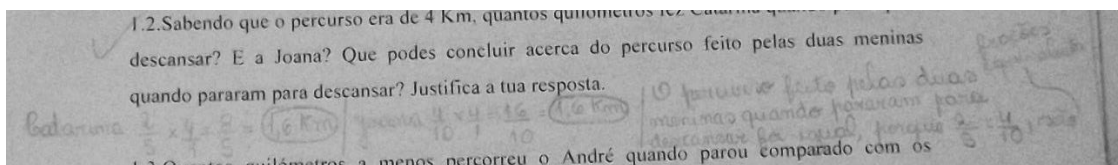 1.2.Sabendo que o percurso era de 4 Km, quantos quilómetros fez Catarina
descansar? E a Joana? Que podes concluir acerca do percurso feito pelas duas meninas
quando pararam para descansar? Justifica a tua resposta.
Catarina 2/5 × 4/1 = 8/5 = 1,6 Km
Joana 4/10 × 4/1 = 16/10 = 1,6 Km
O percurso feito pelas duas
meninas quando pararam para
descansar foi igual, porque 2/5 = 4/10, são
frações
equivalentes
quilómetros a menos percorreu o André quando parou comparado com os